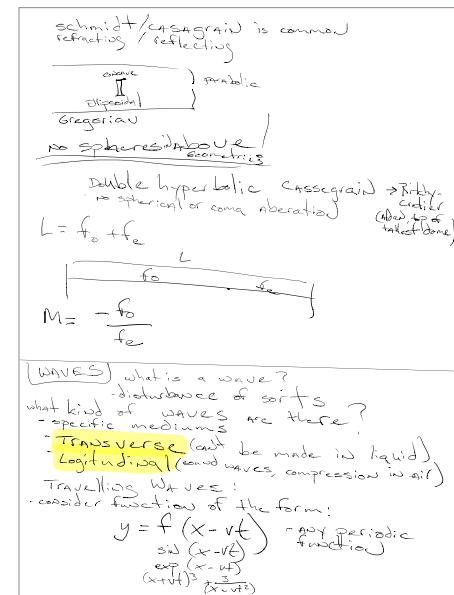 schmidt/CASAGRAIN is common
refracting/reflecting
concave
parabolic
Ellipsoidal
Gregorian
No spheres in Above
Geometries
Double hyperbolic Cassegrain → Ritchy-
Cretier
No spherical or coma Aberation
top of
tallest dome)
L = f₀ + fₑ
L
f₀
fₑ
M = -f₀/fₑ
WAVES
what is a wave?
- disturbance of sorts
what kind of waves are there?
- specific mediums
- Transverse (can't be made in liquid)
- Logitudinal (sound waves, compression in air)
Travelling Waves:
- consider function of the form:
y = f (x - vt)
- Any periodic
function
sin (x - vt)
exp (x - vt)
(x+vt)³ + 3/(x-vt²)